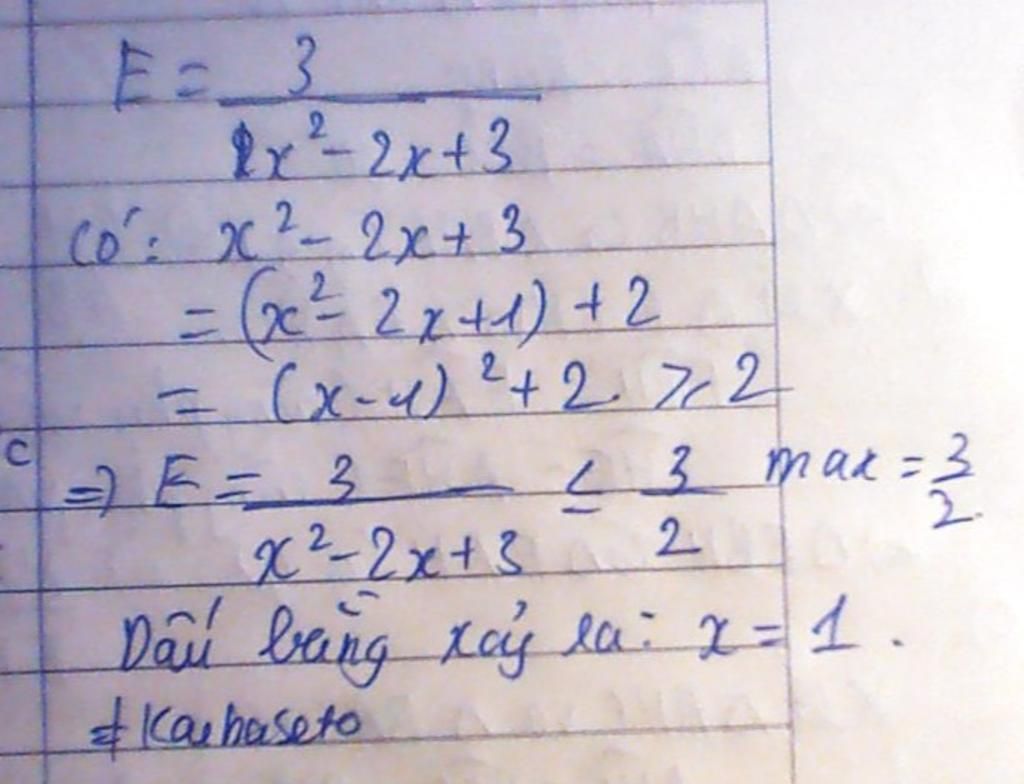 E = 3 / x² - 2x + 3
Có: x² - 2x + 3
= (x² - 2x + 1) + 2
= (x - 1)² + 2 ≥ 2
c
=> E = 3 / x² - 2x + 3 ≤ 3 / 2 max = 3 / 2
Dấu bằng xảy ra: x = 1.